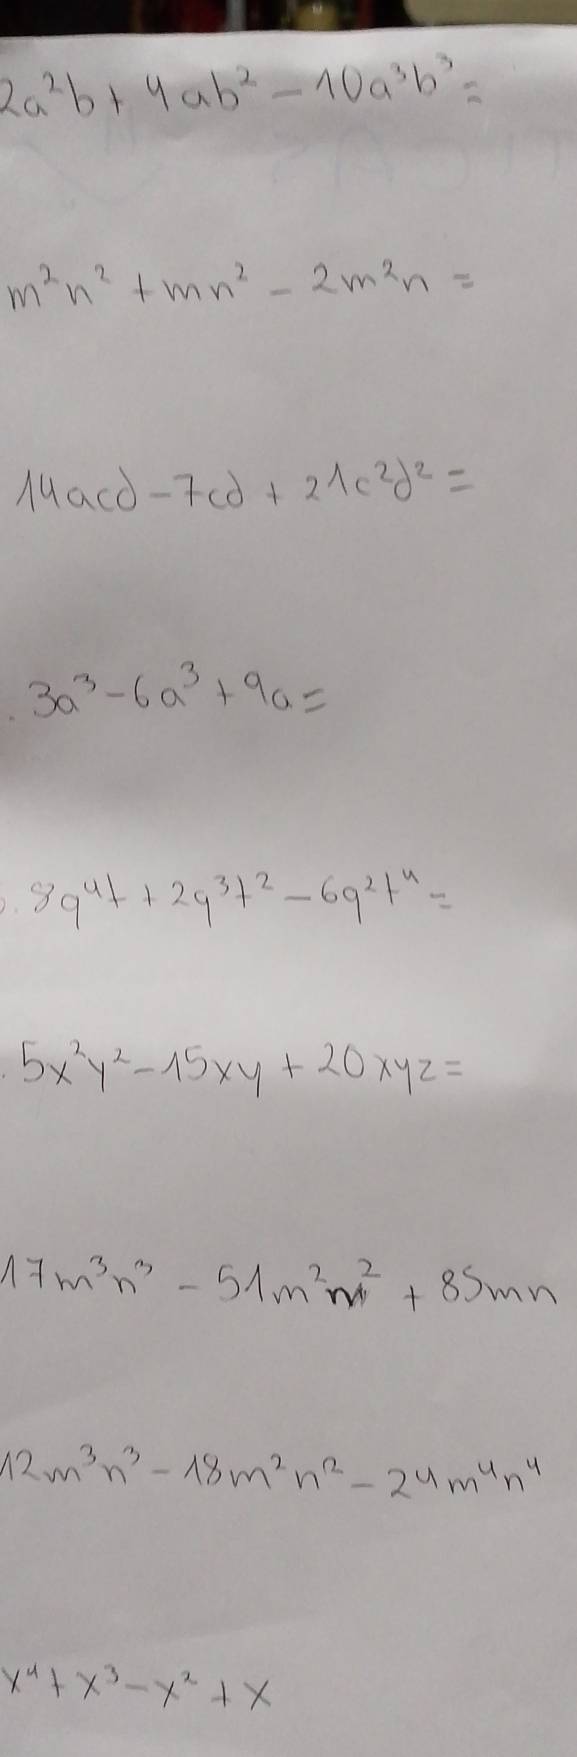 2a²b + 4ab² - 10a³b³ =
m²n² + mn² - 2m²n =
14acd - 7cd + 21c²d² =
. 3a³ - 6a³ + 9a =
. 8q⁴t + 2q³t² - 6q²t⁴ =
. 5x²y² - 15xy + 20xyz =
17m³n³ - 51m²n² + 85mn
12m³n³ - 18m²n² - 24m⁴n⁴
x⁴ + x³ - x² + x